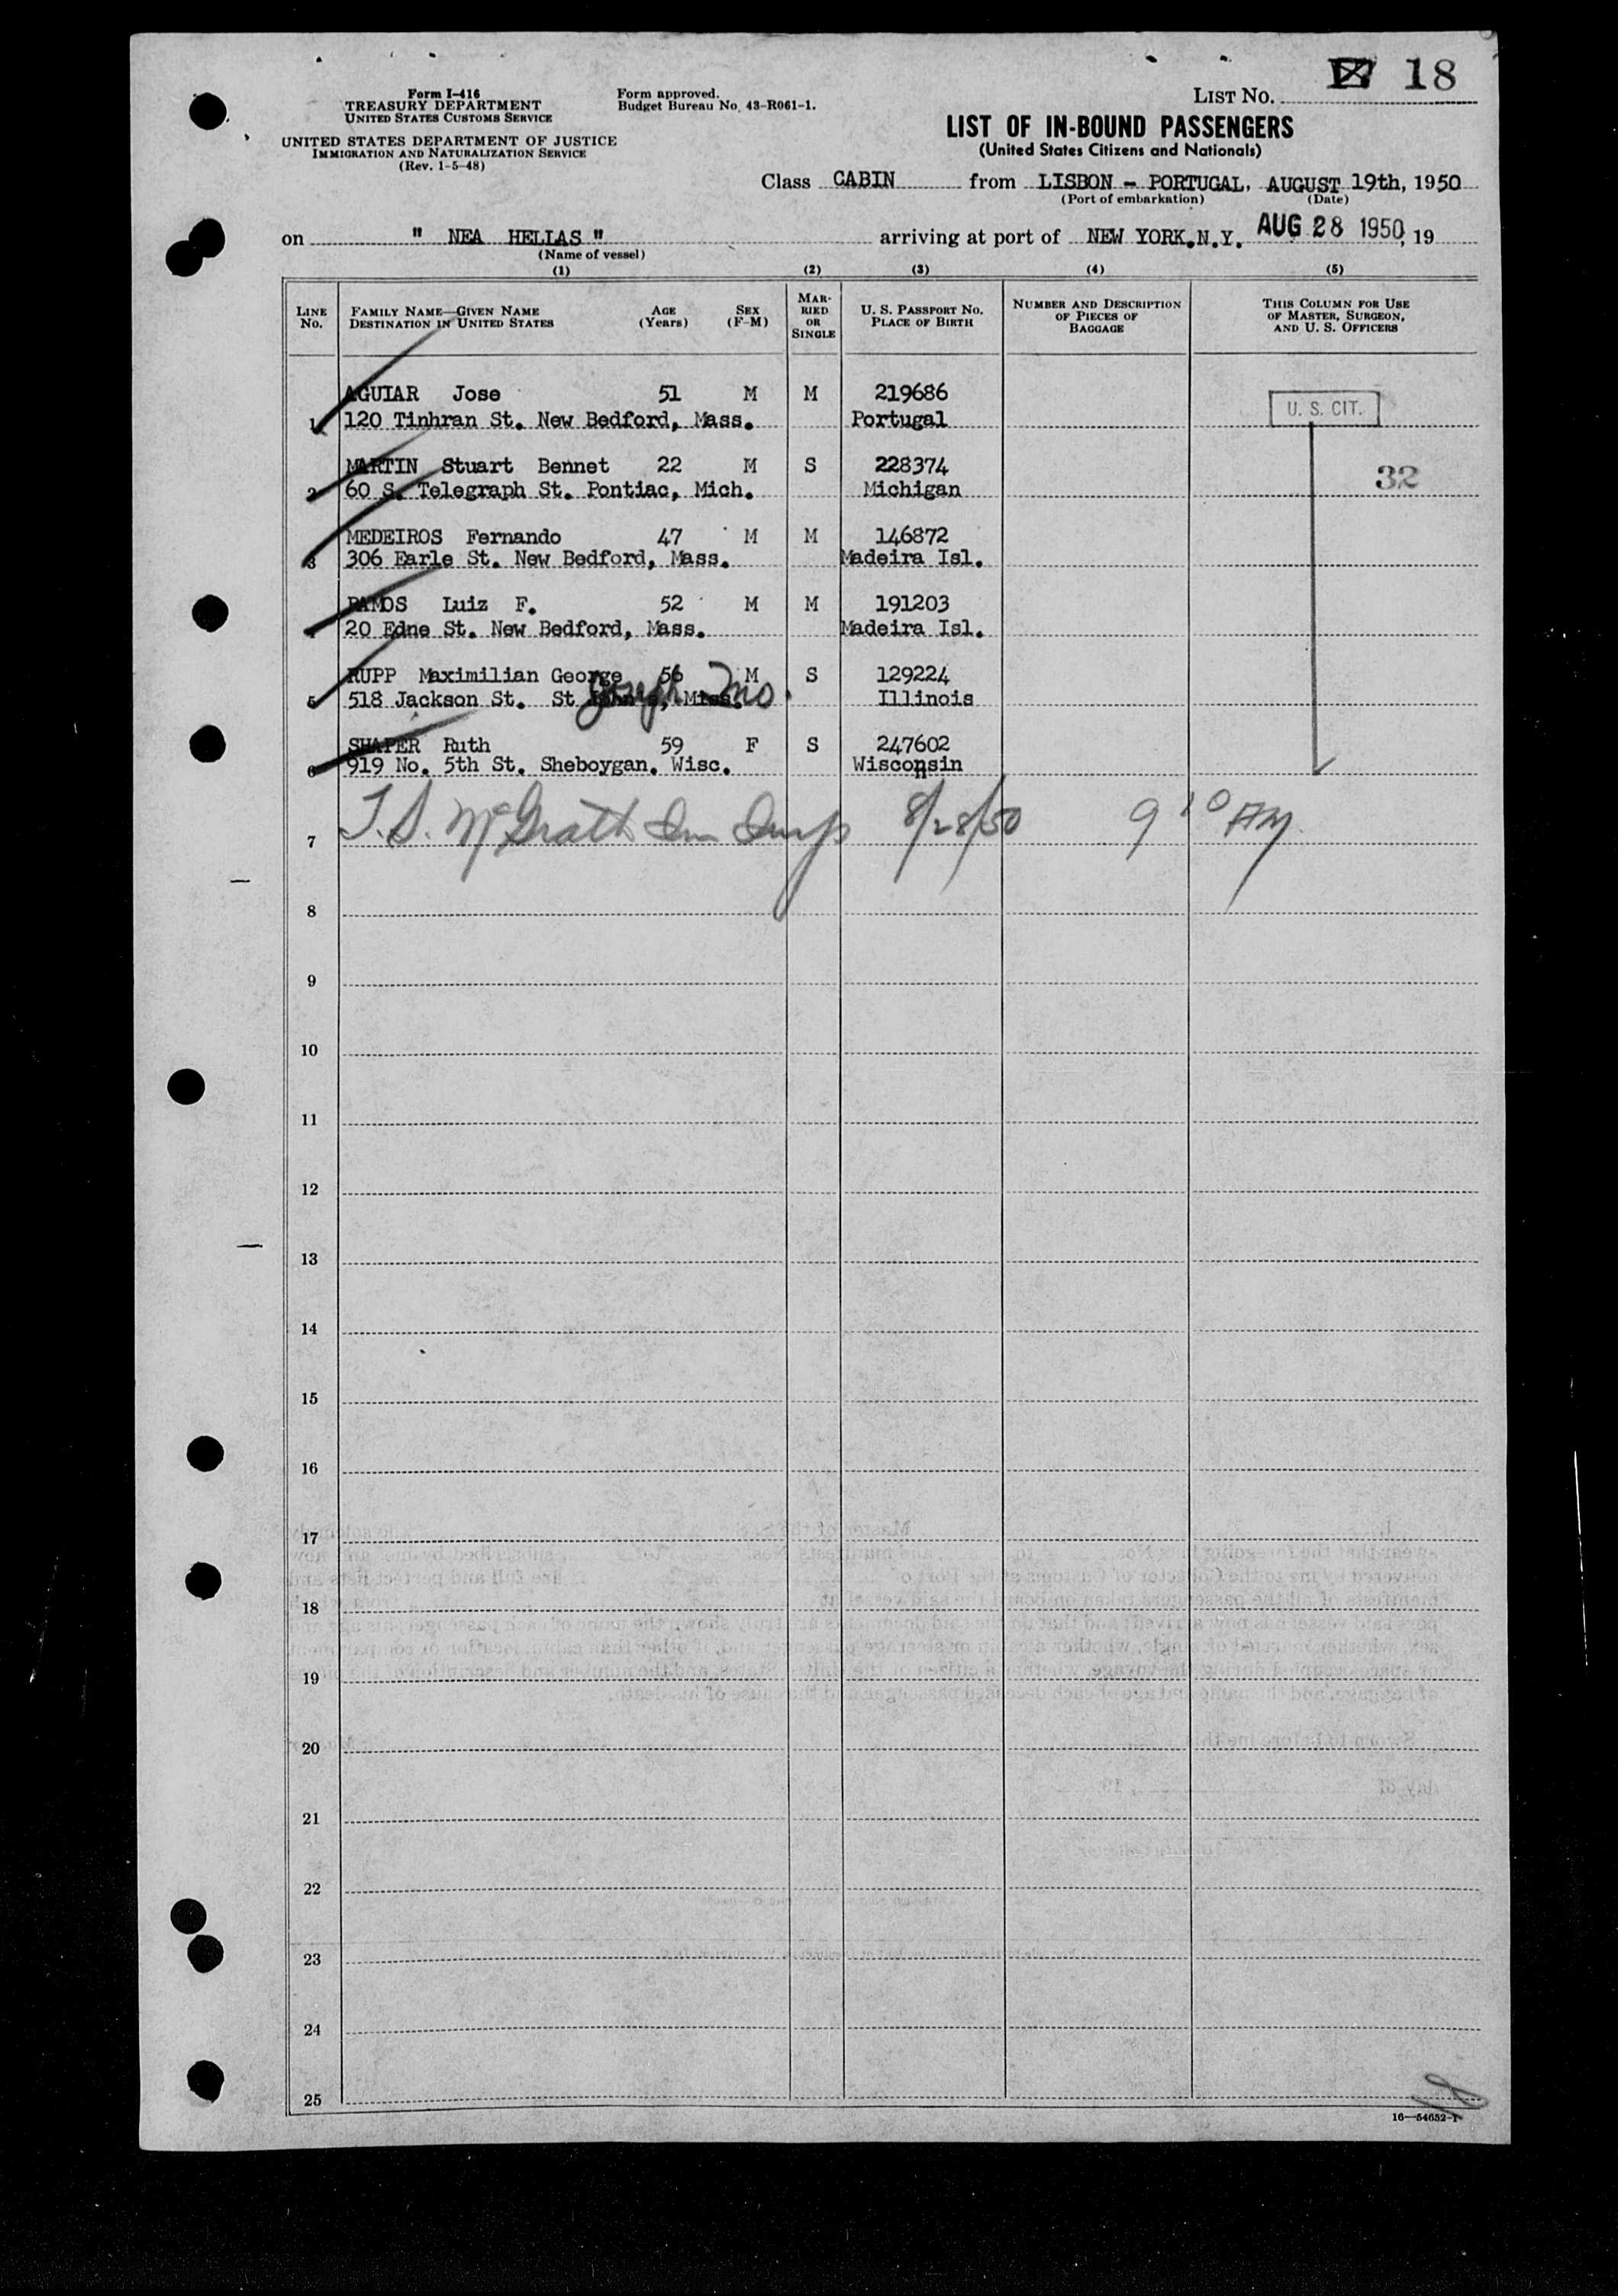 LIST NO. 18
Form I-416
TREASURY DEPARTMENT
UNITED STATES CUSTOMS SERVICE
UNITED STATES DEPARTMENT OF JUSTICE
IMMIGRATION AND NATURALIZATION SERVICE
(Rev. 1-5-48)
Form approved.
Budget Bureau No. 43-R061-1.
LIST OF IN-BOUND PASSENGERS
(United States Citizens and Nationals)
Class CABIN from LISBON - PORTUGAL, AUGUST 19th, 1950
(Port of embarkation) (Date)
on " NEA HELLAS " arriving at port of NEW YORK.N.Y. AUG 28 1950, 19
(Name of vessel)
(1) (2) (3) (4) (5)
LINE No. FAMILY NAME—GIVEN NAME DESTINATION IN UNITED STATES AGE (Years) SEX (F-M) MARRIED OR SINGLE U. S. PASSPORT NO. PLACE OF BIRTH NUMBER AND DESCRIPTION OF PIECES OF BAGGAGE THIS COLUMN FOR USE OF MASTER, SURGEON, AND U. S. OFFICERS
AGUIAR Jose 51 M M 219686
1 120 Tinhran St. New Bedford, Mass. Portugal U. S. CIT.
MARTIN Stuart Bennet 22 M S 228374
2 60 S. Telegraph St. Pontiac, Mich. Michigan 32
MEDEIROS Fernando 47 M M 146872
3 306 Earle St. New Bedford, Mass. Madeira Isl.
RAMOS Luiz F. 52 M M 191203
4 20 Edne St. New Bedford, Mass. Madeira Isl.
RUPP Maximilian George 56 M S 129224
5 518 Jackson St. St Joseph Mo. Illinois
SHAPER Ruth 59 F S 247602
6 919 No. 5th St. Sheboygan. Wisc. Wisconsin
7 T.S. McGrath Imm Insp 8/28/50 9 10 AM
8
9
10
11
12
13
14
15
16
17
18
19
20
21
22
23
24
25
16—54652-1